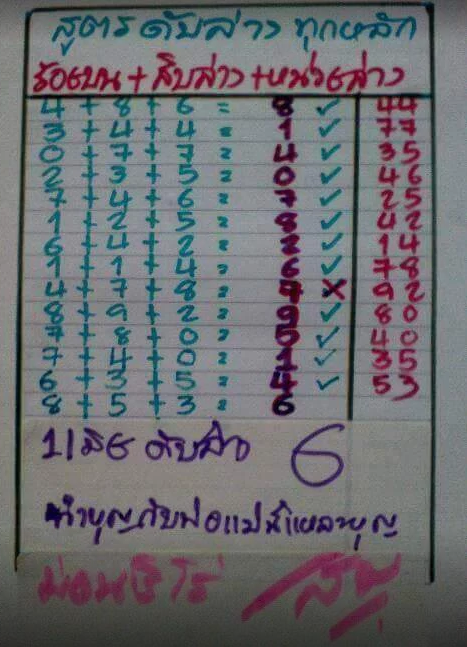 สูตรดับล่าง ทุกหลัก
ร้อยบน+สิบล่าง+หน่วยล่าง
4+8+6= 8 ✓ 44
3+4+4= 1 ✓ 77
0+7+7= 4 ✓ 35
2+3+5= 0 ✓ 46
7+4+6= 7 ✓ 25
1+2+5= 8 ✓ 42
6+4+2= 2 ✓ 14
1+1+4= 6 ✓ 78
4+7+8= 9 ✗ 92
8+9+2= 9 ✓ 80
7+8+0= 5 ✓ 40
7+4+0= 1 ✓ 35
6+3+5= 4 ✓ 53
8+5+3= 6
1เมย ดับล่าง 6
ทำบุญกับพ่อแม่นี่แหละบุญ